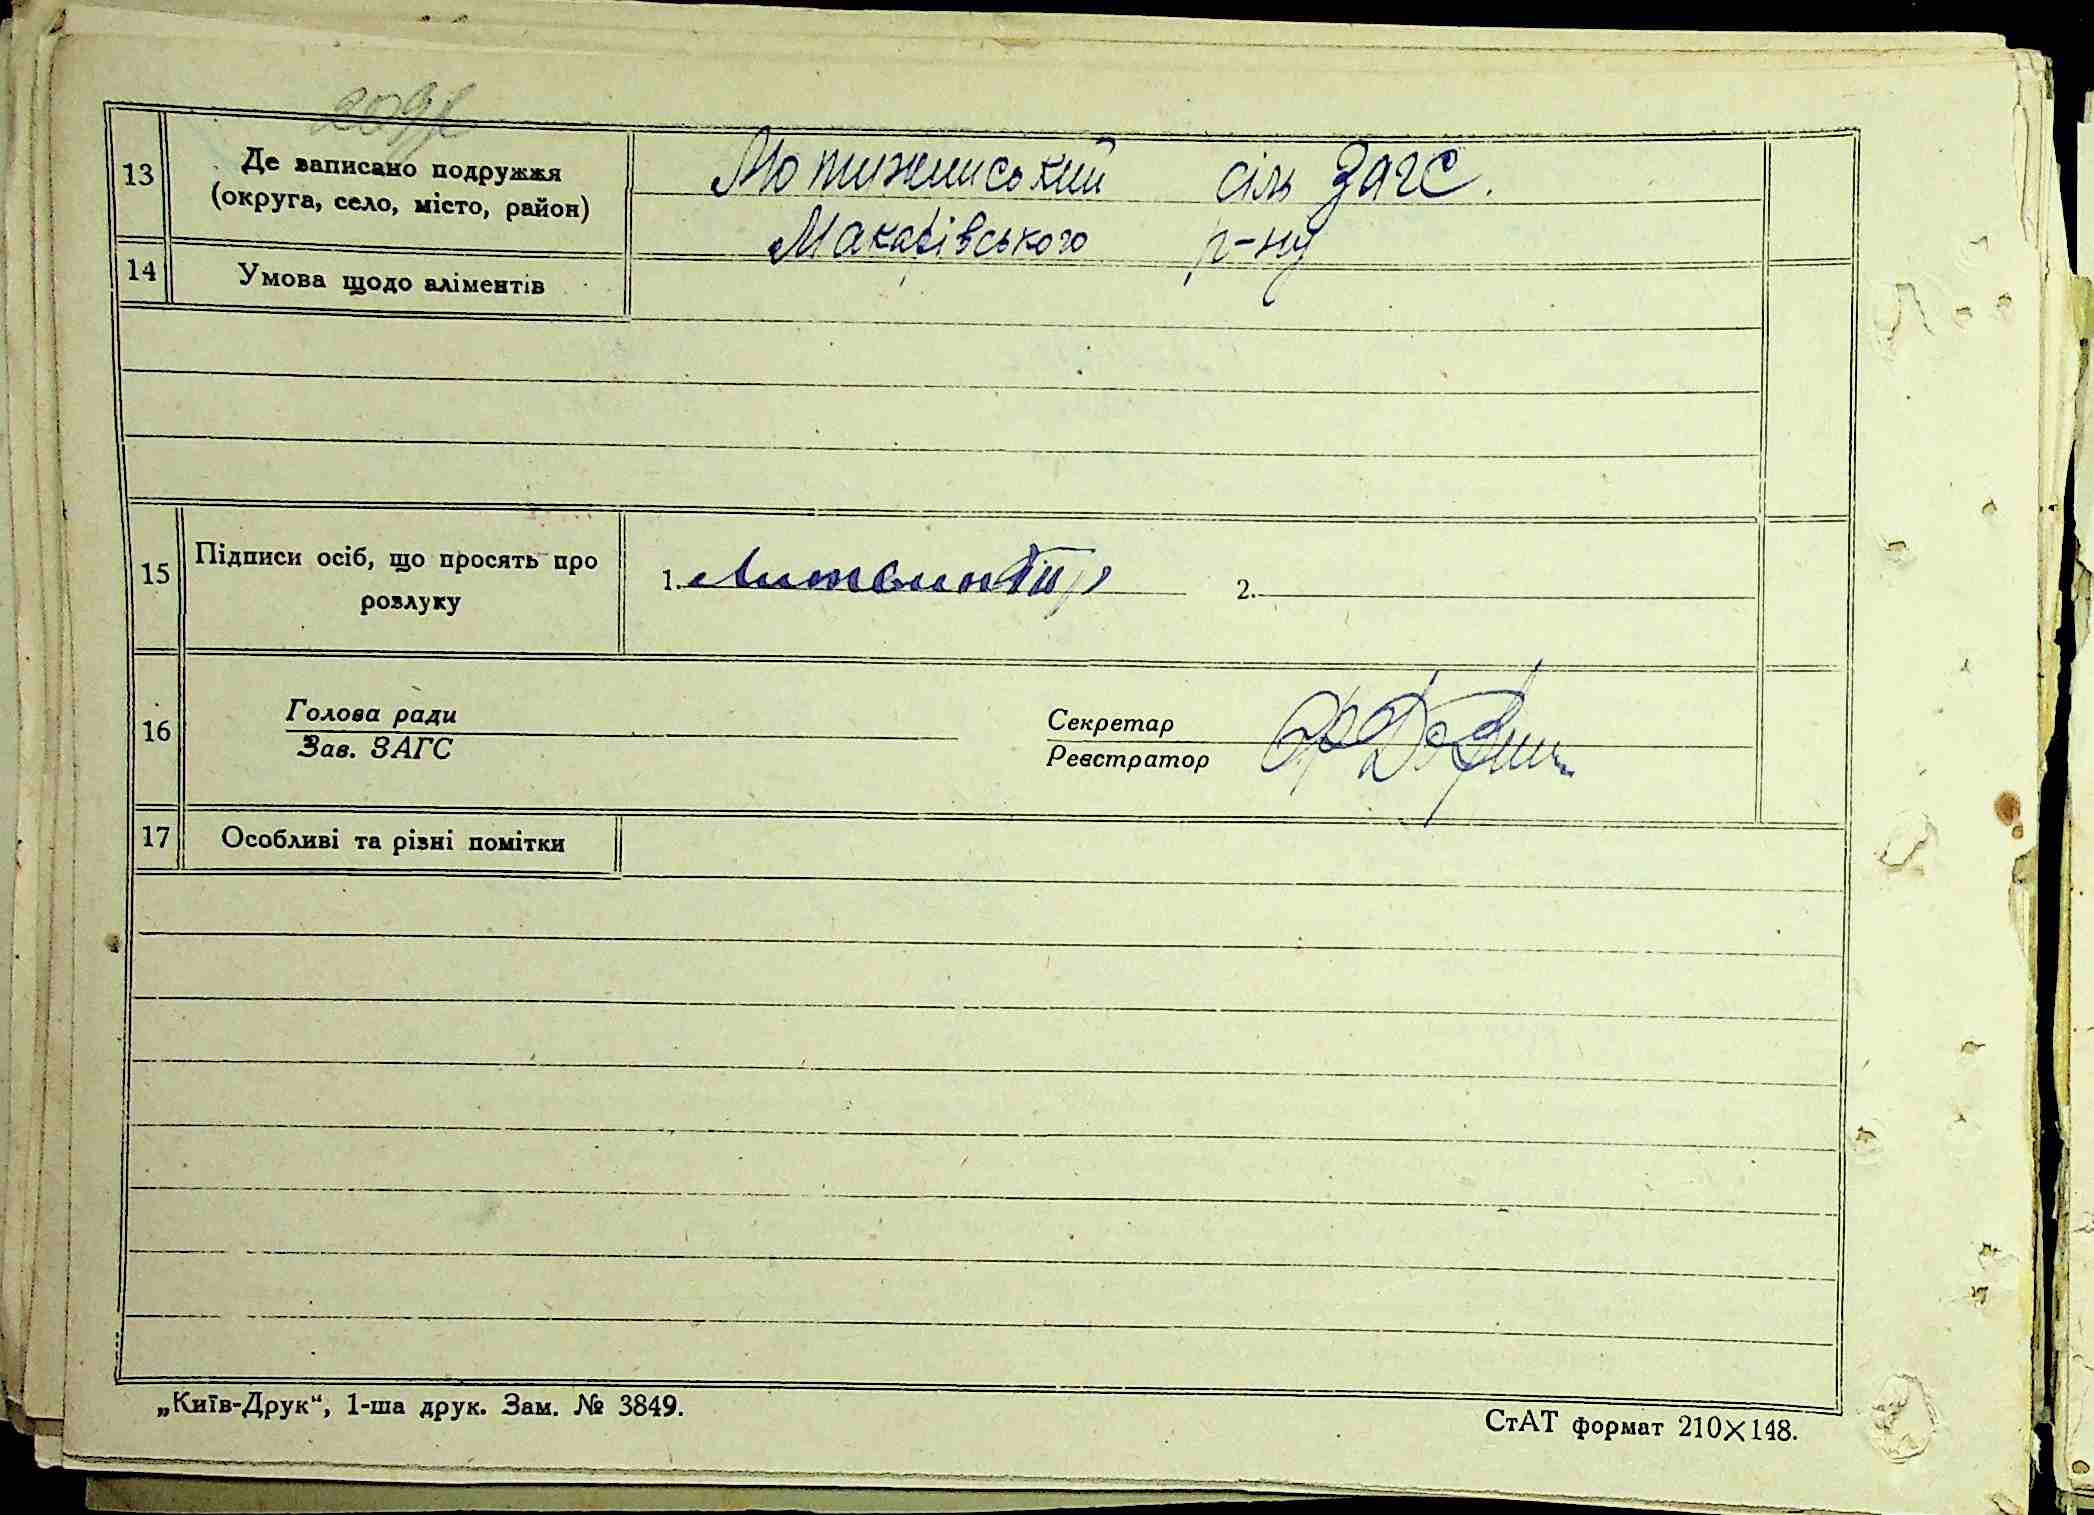 13
Де записано подружжя
(округа, село, місто, район)
Мотижинський сіль ЗАГС.
Макарівського р-ну
14
Умова щодо аліментів
15
Підписи осіб, що просять про
розлуку
1. Литвин
2.
16
Голова ради
Зав. ЗАГС
Секретар
Реєстратор
17
Особливі та різні помітки
„Київ-Друк“, 1-ша друк. Зам. № 3849.
СтАТ формат 210×148.